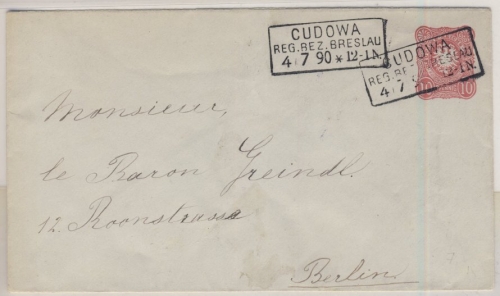 CUDOWA
REG. REZ. BRESLAU
4/7 90 * 12-1N.
CUDOWA
REG. BRESLAU
4/7 12-1N.
10 10
Monsieur,
le Baron Greindl.
12. Roonstrasse
Berlin